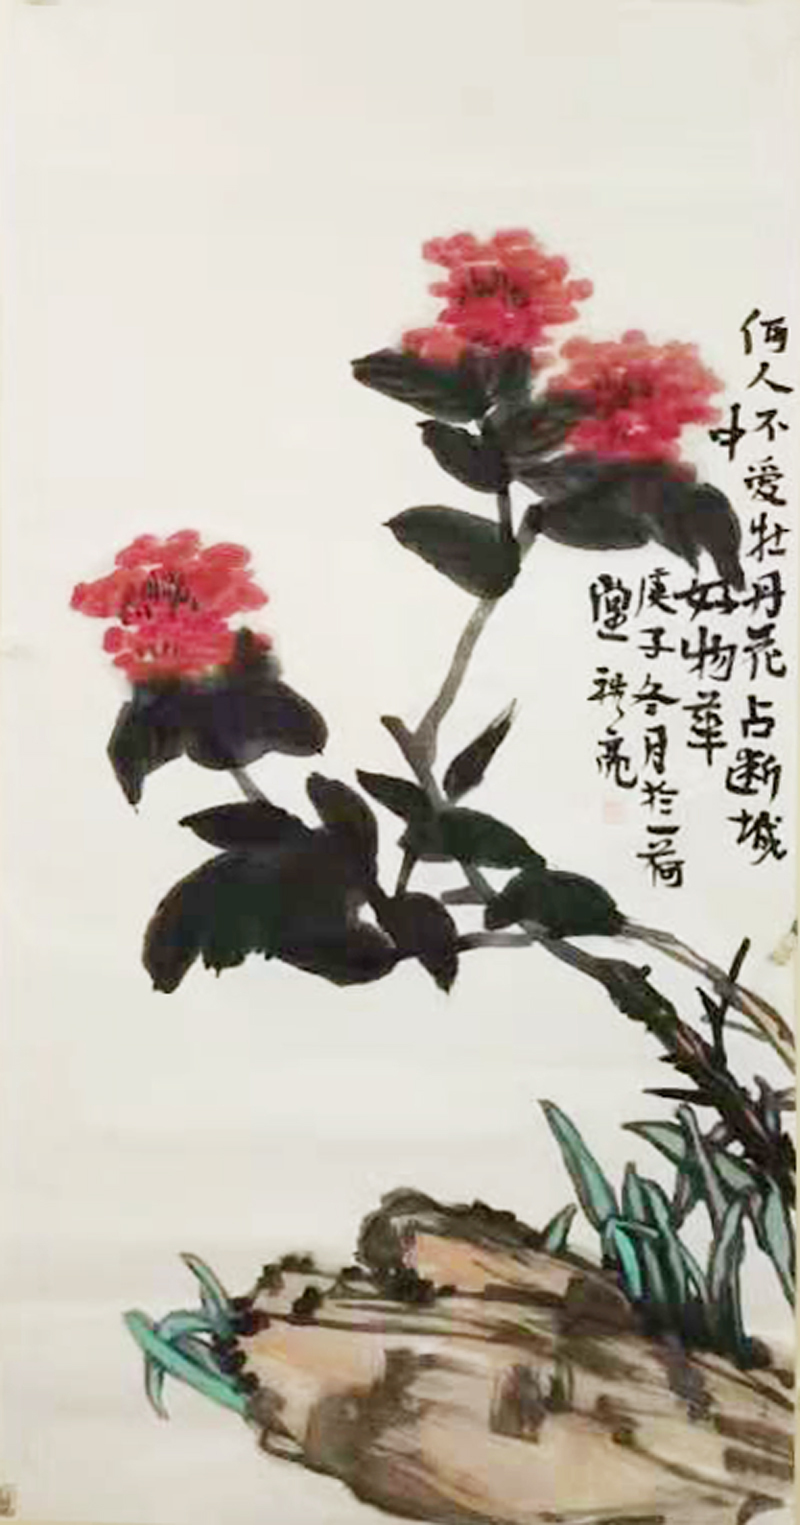 何人不爱牡丹花占断城
中
好物华
庚子冬月於一荷
堂 亮